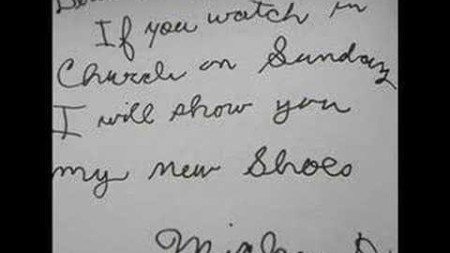 If you watch in
Church on Sunday
I will show you
my new Shoes